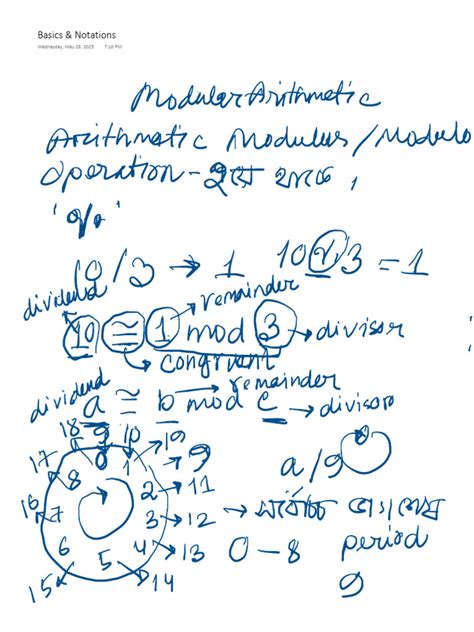 Basics & Notations
Wednesday, May 28, 2025 7:10 PM
Modular Arithmetic
Arithmatic Modulus / Modulo
Operation -
'%'
10 / 3 → 1 10 % 3 = 1
dividend remainder
10 ≅ 1 mod 3 → divisor
congruant
dividend remainder
a ≅ b mod c → divisor
18 9 10 19
17 0 1 9 a / 9
8 2 → 11
16 7 3 → 12 →
6 4 → 13 0 - 8 period
15 5 14 9